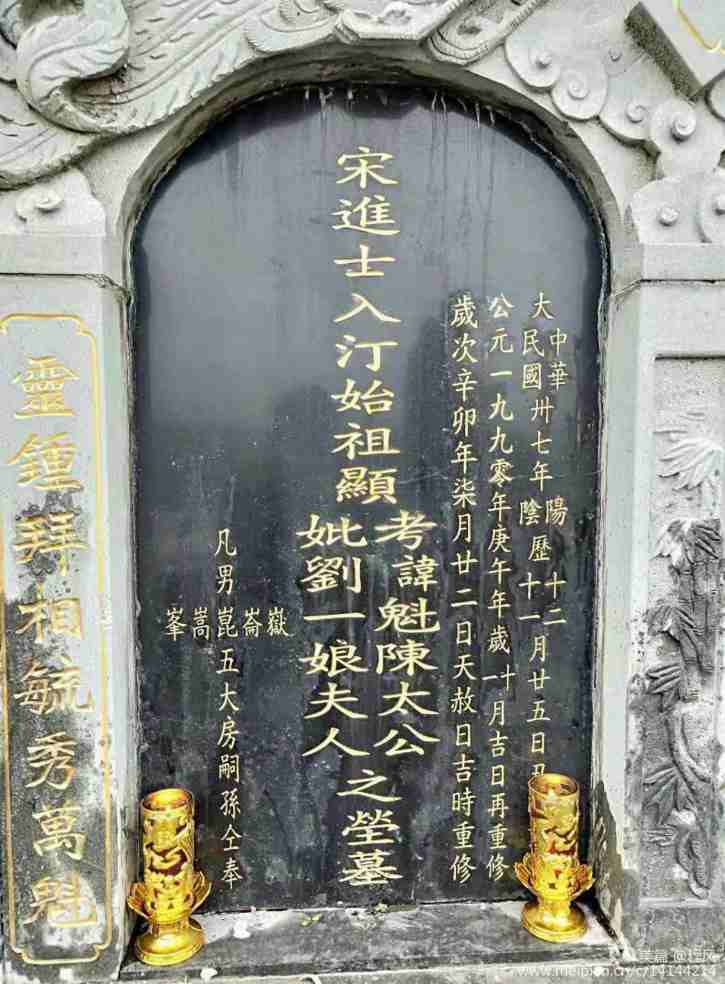 大中華民國卅七年陽陰歷十二十一月廿五日丑
公元一九九零年庚午年歲十一月吉日再重修
歲次辛卯年柒月廿二日天赦日吉時重修
宋進士入汀始祖顯
考諱魁陳太公
妣劉一娘夫人
之塋墓
凡男
嶽崙崑嵩峯
五大房嗣孫仝奉
靈鍾拜相毓秀萬魁
美篇